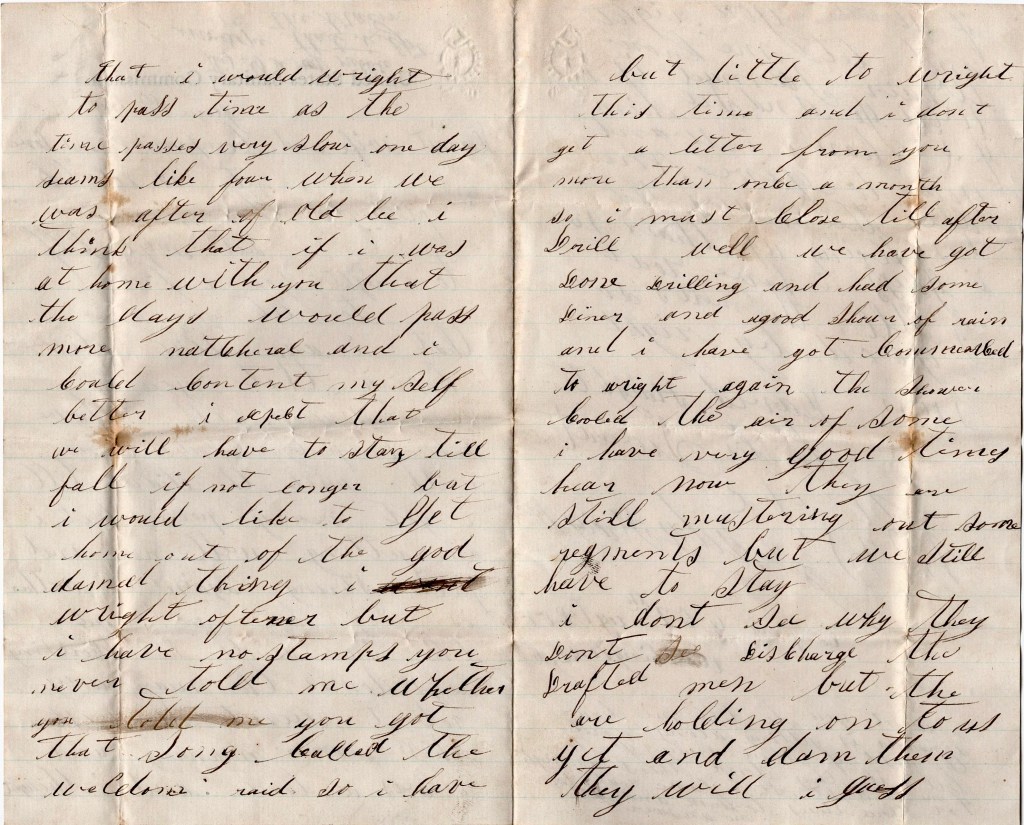 that i would wright
to pass time as the
time passes very slow one day
seams like four when we
was after of old lee i
think that if i was
at home with you that
the days would pass
more natcheral and i
could content my self
better i expect that
we will have to stay till
fall if not longer but
i would like to get
home out of the god
damd thing i
wright oftener but
i have no stamps you
never told me whether
you told me you got
that song called the
weldone raid so i have
but little to wright
this time and i dont
get a letter from you
more than once a month
so i must close till after
Drill well we have got
Done Drilling and had some
Diner and agood shour of rain
and i have got commencbed
to wright again the shower
cooled the air of some
i have very good times
hear now they are
still mustering out some
regments but we still
have to stay
i dont see why they
Dont see Discharge the
Drafted men but the
are holding on to us
yet and dam them
they will i guess